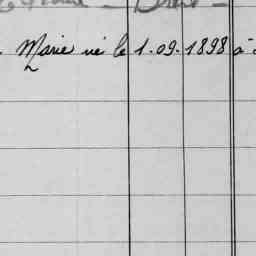 Marie né le 1.09.1898 à